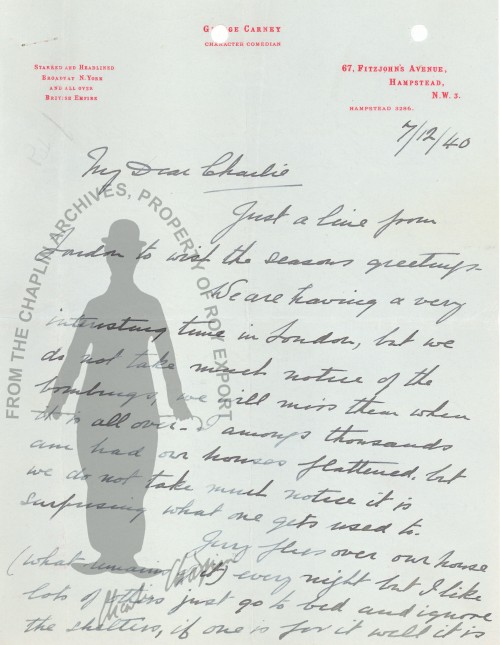 George Carney
CHARACTER COMEDIAN
STARRED AND HEADLINED
BROADWAY N.YORK
AND ALL OVER
BRITISH EMPIRE
67, FITZJOHN'S AVENUE,
HAMPSTEAD,
N.W. 3.
HAMPSTEAD 3286.
7/12/40
My Dear Charlie
Just a line from
London to wish the seasons greetings-
We are having a very
interesting time in London, but we
do not take much notice of the
bombings, we will miss them when
it is all over- I amongs thousands
have had our houses flattened, but
we do not take much notice it is
surprising what one gets used to-
Jerry flies over our house
(what remains of it) every night but I like
lots of others just go to bed and ignore
the shelters, if one is for it well it is
FROM THE CHAPLIN ARCHIVES, PROPERTY OF ROY EXPORT
Charles Chaplin